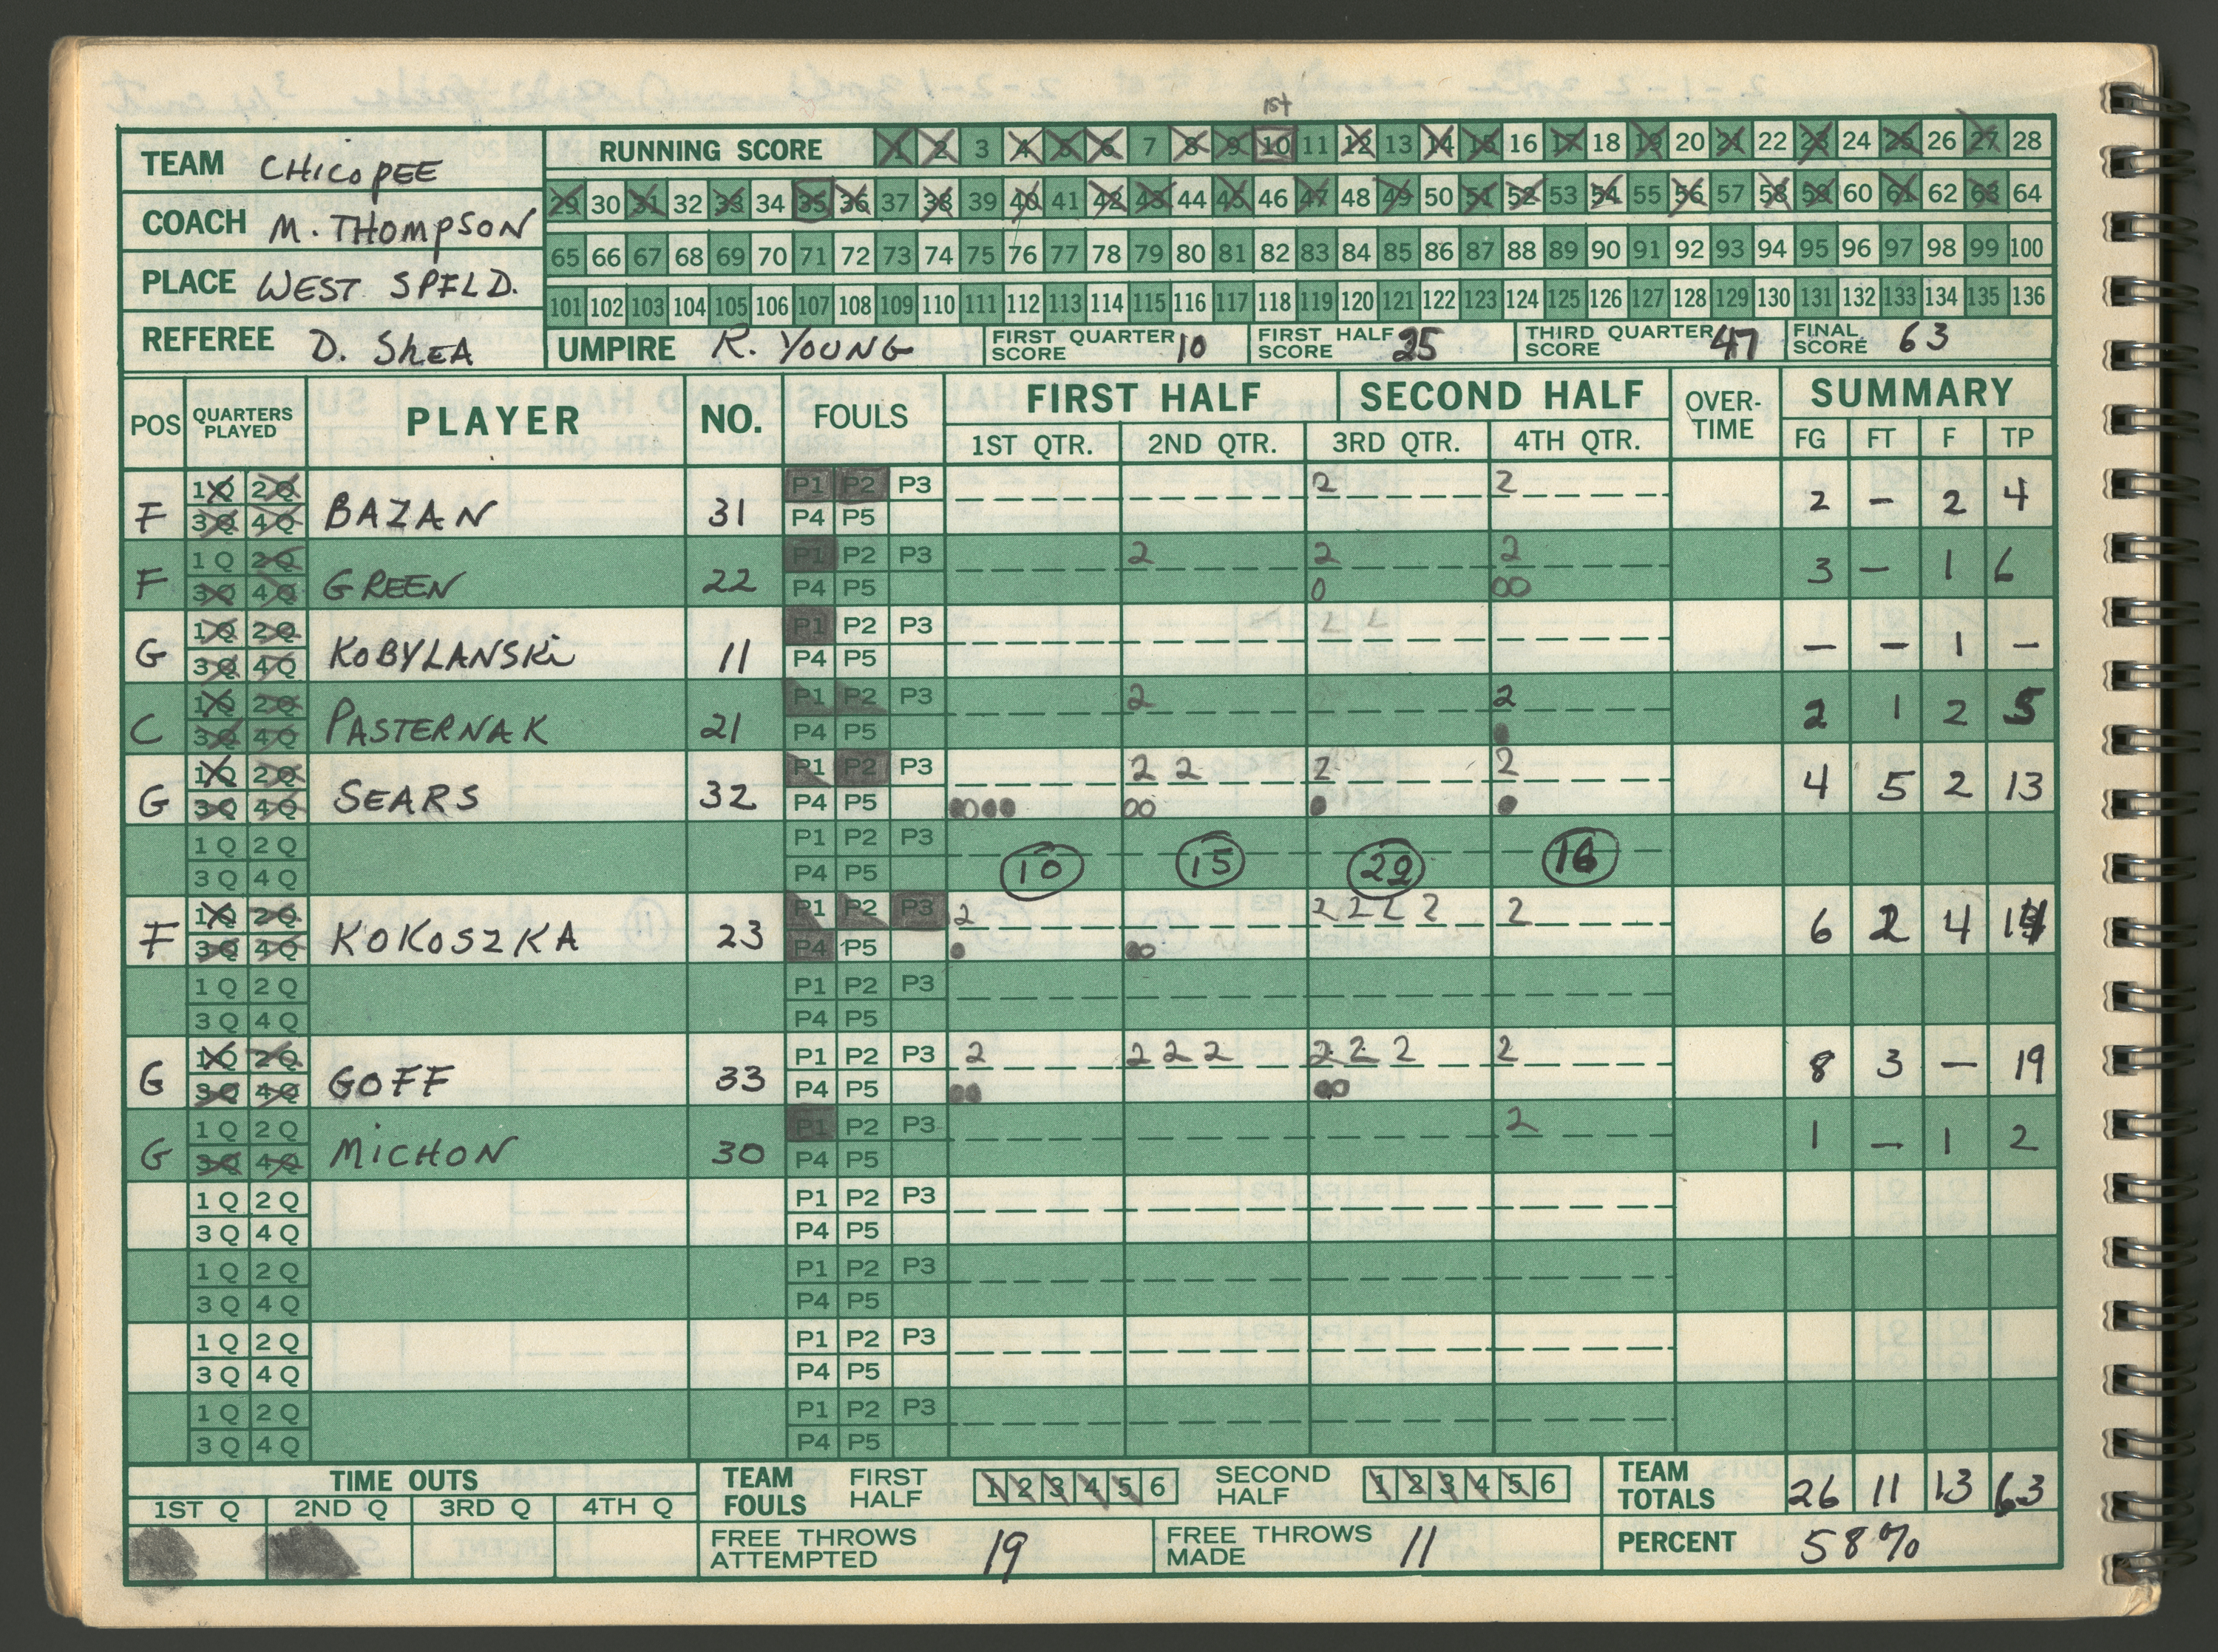 1st
TEAM CHICOPEE
RUNNING SCORE 1 2 3 4 5 6 7 8 9 10 11 12 13 14 15 16 17 18 19 20 21 22 23 24 25 26 27 28
COACH M. THOMPSON
29 30 31 32 33 34 35 36 37 38 39 40 41 42 43 44 45 46 47 48 49 50 51 52 53 54 55 56 57 58 59 60 61 62 63 64
PLACE WEST SPFLD.
65 66 67 68 69 70 71 72 73 74 75 76 77 78 79 80 81 82 83 84 85 86 87 88 89 90 91 92 93 94 95 96 97 98 99 100
101 102 103 104 105 106 107 108 109 110 111 112 113 114 115 116 117 118 119 120 121 122 123 124 125 126 127 128 129 130 131 132 133 134 135 136
REFEREE D. SHEA UMPIRE R. YOUNG FIRST QUARTER SCORE 10 FIRST HALF SCORE 25 THIRD QUARTER SCORE 47 FINAL SCORE 63
POS QUARTERS PLAYED PLAYER NO. FOULS FIRST HALF SECOND HALF OVER-TIME SUMMARY
1ST QTR. 2ND QTR. 3RD QTR. 4TH QTR. FG FT F TP
1Q 2Q P1 P2 P3 2 2
F 3Q 4Q BAZAN 31 P4 P5 2 - 2 4
1Q 2Q P1 P2 P3 2 2 2
F 3Q 4Q GREEN 22 P4 P5 0 00 3 - 1 6
1Q 2Q P1 P2 P3
G 3Q 4Q KOBYLANSKI 11 P4 P5 - - 1 -
1Q 2Q P1 P2 P3 2 2
C 3Q 4Q PASTERNAK 21 P4 P5 ● 2 1 2 5
1Q 2Q P1 P2 P3 2 2 2 2
G 3Q 4Q SEARS 32 P4 P5 ●0●● 00 ● ● 4 5 2 13
1Q 2Q P1 P2 P3
3Q 4Q P4 P5 10 15 22 16
1Q 2Q P1 P2 P3 2 2 2 2 2 2
F 3Q 4Q KOKOSZKA 23 P4 P5 ● ●0 6 2 4 14
1Q 2Q P1 P2 P3
3Q 4Q P4 P5
1Q 2Q P1 P2 P3 2 2 2 2 2 2 2 2
G 3Q 4Q GOFF 33 P4 P5 ●● ●0 8 3 - 19
1Q 2Q P1 P2 P3 2
G 3Q 4Q MICHON 30 P4 P5 1 - 1 2
1Q 2Q P1 P2 P3
3Q 4Q P4 P5
1Q 2Q P1 P2 P3
3Q 4Q P4 P5
1Q 2Q P1 P2 P3
3Q 4Q P4 P5
1Q 2Q P1 P2 P3
3Q 4Q P4 P5
TIME OUTS TEAM FOULS FIRST HALF 1 2 3 4 5 6 SECOND HALF 1 2 3 4 5 6 TEAM TOTALS 26 11 13 63
1ST Q 2ND Q 3RD Q 4TH Q
FREE THROWS ATTEMPTED 19 FREE THROWS MADE 11 PERCENT 58%